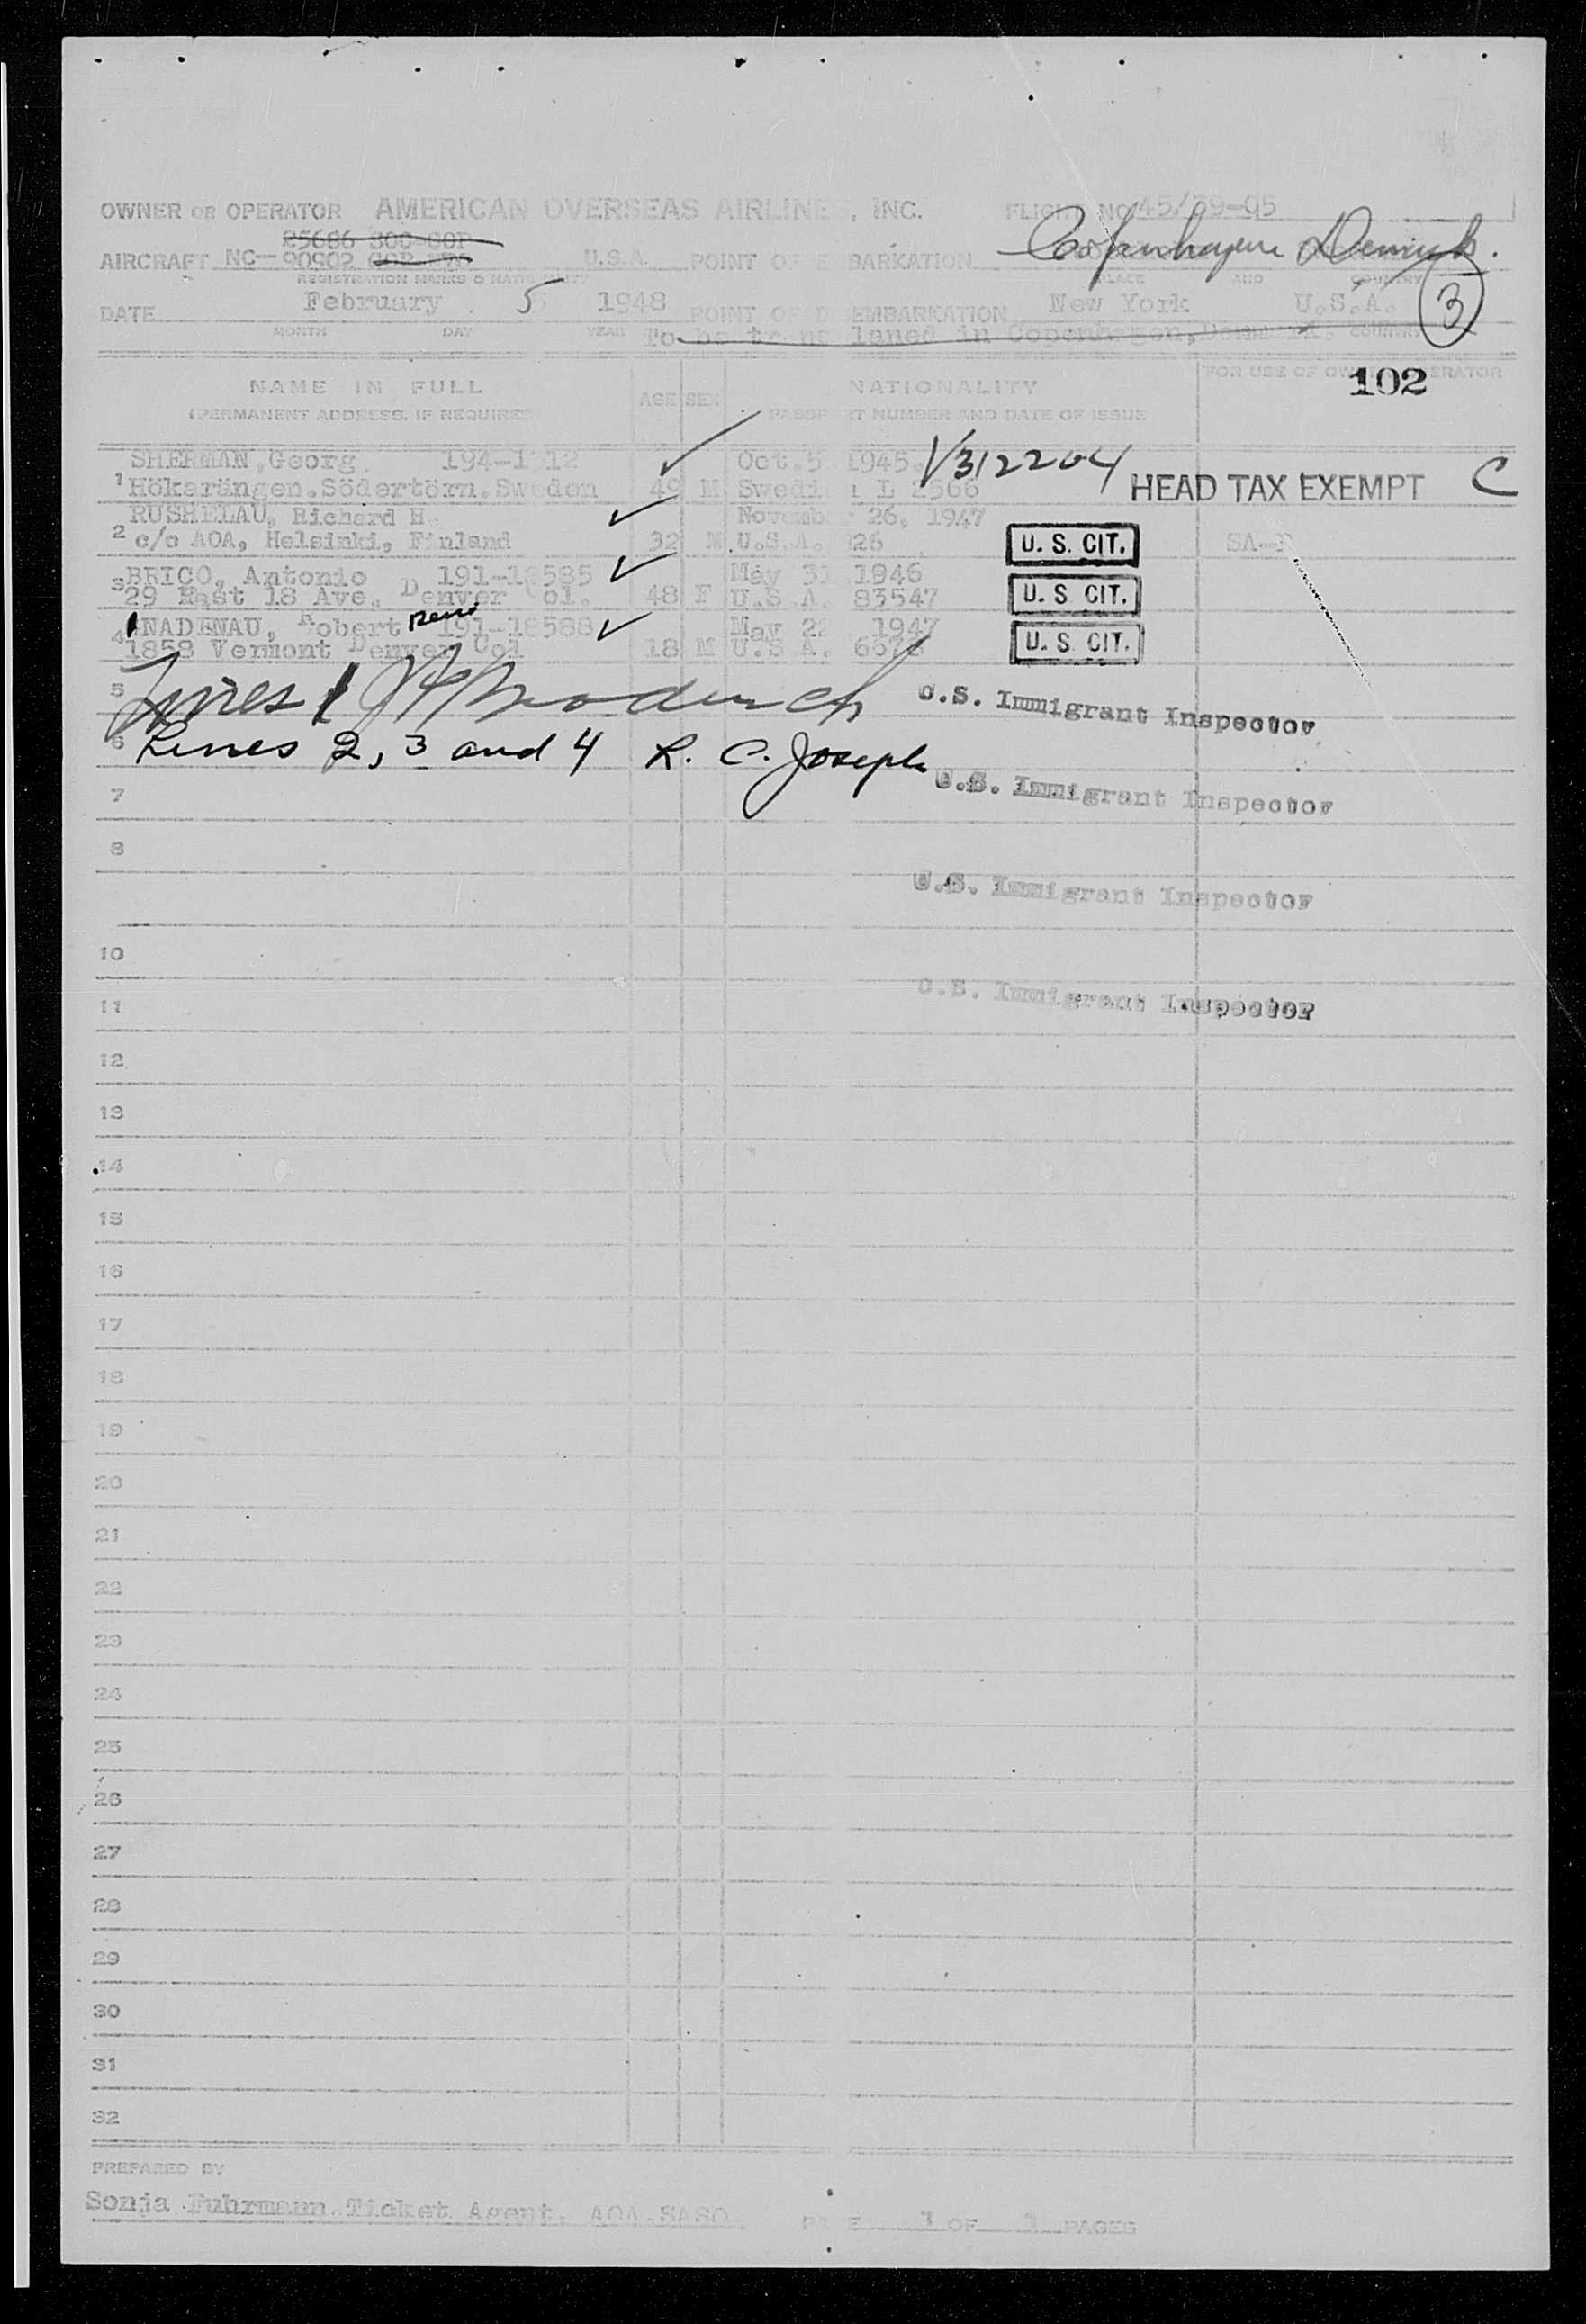 OWNER OR OPERATOR AMERICAN OVERSEAS AIRLINE , INC. FLIGHT NO 45/ 9-05
25686
AIRCRAFT NC- 90902 U.S.A. POINT OF E BARKATION Copenhagen Denmark.
REGISTRATION MARKS & NATIONALITY PLACE AND COUNTRY
DATE February 5 1948 POINT OF D EMBARKATION New York U.S.A. 3
MONTH DAY YEAR To be trans laned in Copenhagen, Denmark. COUNTRY
NAME IN FULL AGE SEX NATIONALITY FOR USE OF OW ERATOR 102
(PERMANENT ADDRESS, IF REQUIRED PASSP T NUMBER AND DATE OF ISSUE
SHERMAN, Georg 194-1 12 Oct.5 1945. V312204
1 Hökarängen.Södertörn.Sweden 49 M Swedi L 2566 HEAD TAX EXEMPT C
RUSHELAU, Richard H. November 26, 1947
2 c/o AOA, Helsinki, F nland 32 M U.S.A. 26 U. S. CIT. SA-
3 BRICO, Antonio 191-18585 May 31 1946
29 East 18 Ave. Denver Col. 48 F U.S.A. 83547 U. S. CIT.
NADENAU, Robert 191-18588 May 22 1947
4 1858 Vermont Denver Col 18 M U.S.A. U. S. CIT.
5 Lines 1 U.S. Immigrant Inspector
6 Lines 2, 3 and 4 R. C. Joseph
7 U.S. Immigrant Inspector
8
U.S. Immigrant Inspector
10
11 U.S. Immigrant Inspector
12
13
14
15
16
17
18
19
20
21
22
23
24
25
26
27
28
29
30
31
32
PREPARED BY
Sonja Fuhrmann.Ticket Agent. AOA.SASO PA E 1 OF 1 PAGES